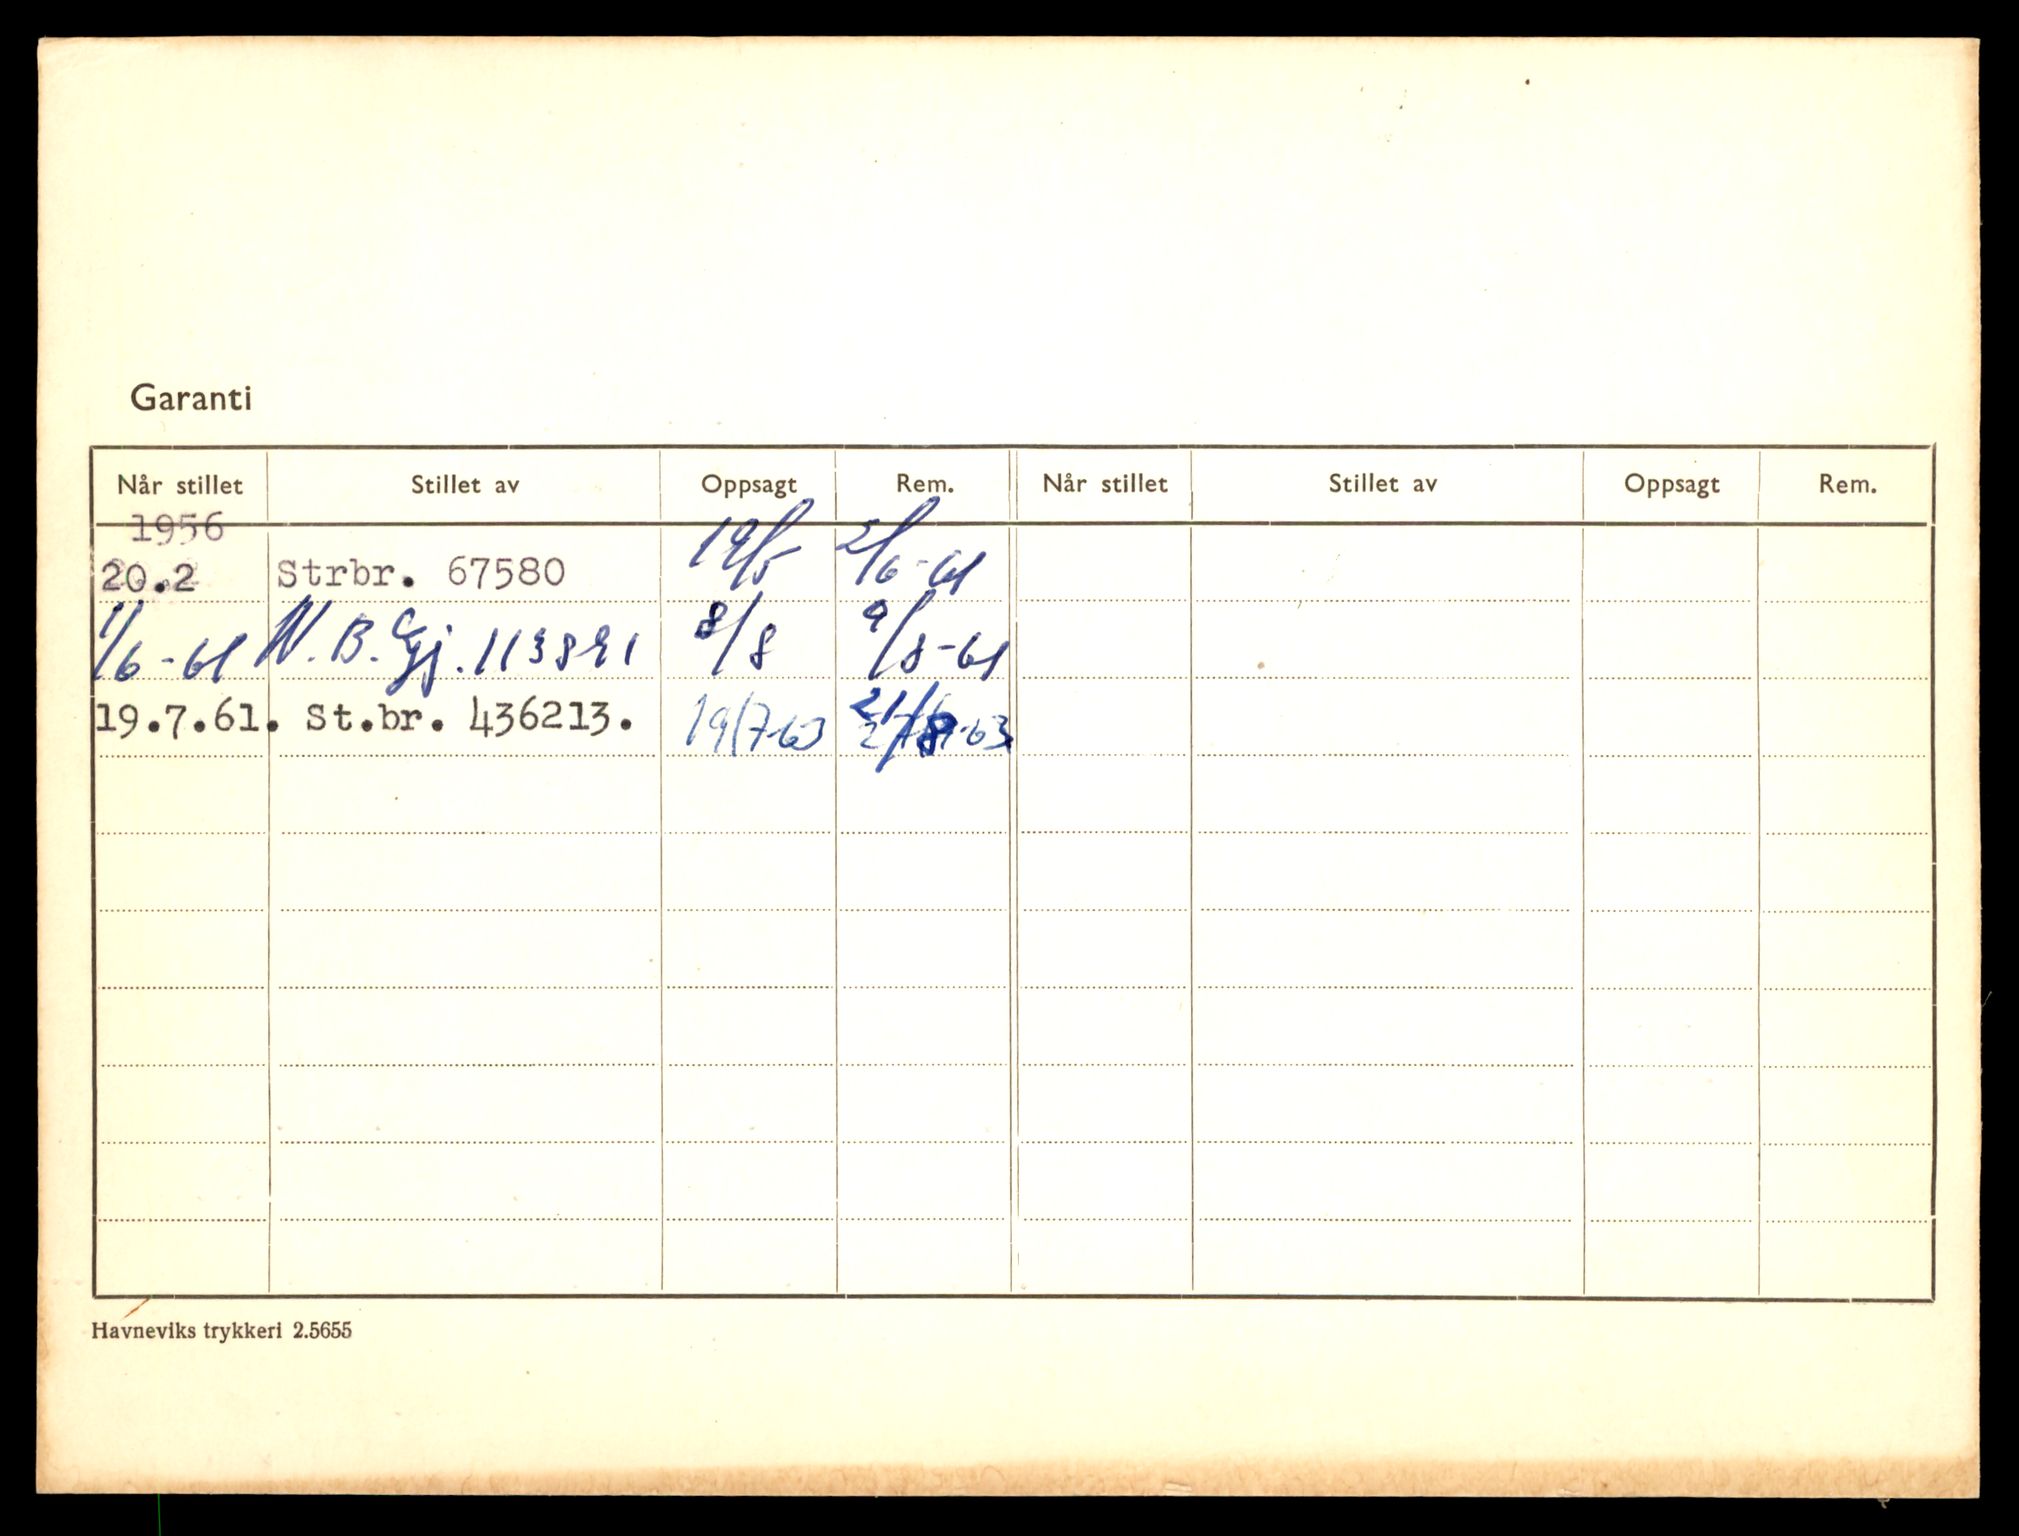 Garanti
Når stillet Stillet av Oppsagt Rem. Når stillet Stillet av Oppsagt Rem.
1956
20.2 Strbr. 67580 19/5 2/6-61
1/6-61 N.B.Gj. 113891 8/8 9/8-61
19.7.61. St.br. 436213. 19/7-63 -63
Havneviks trykkeri 2.5655